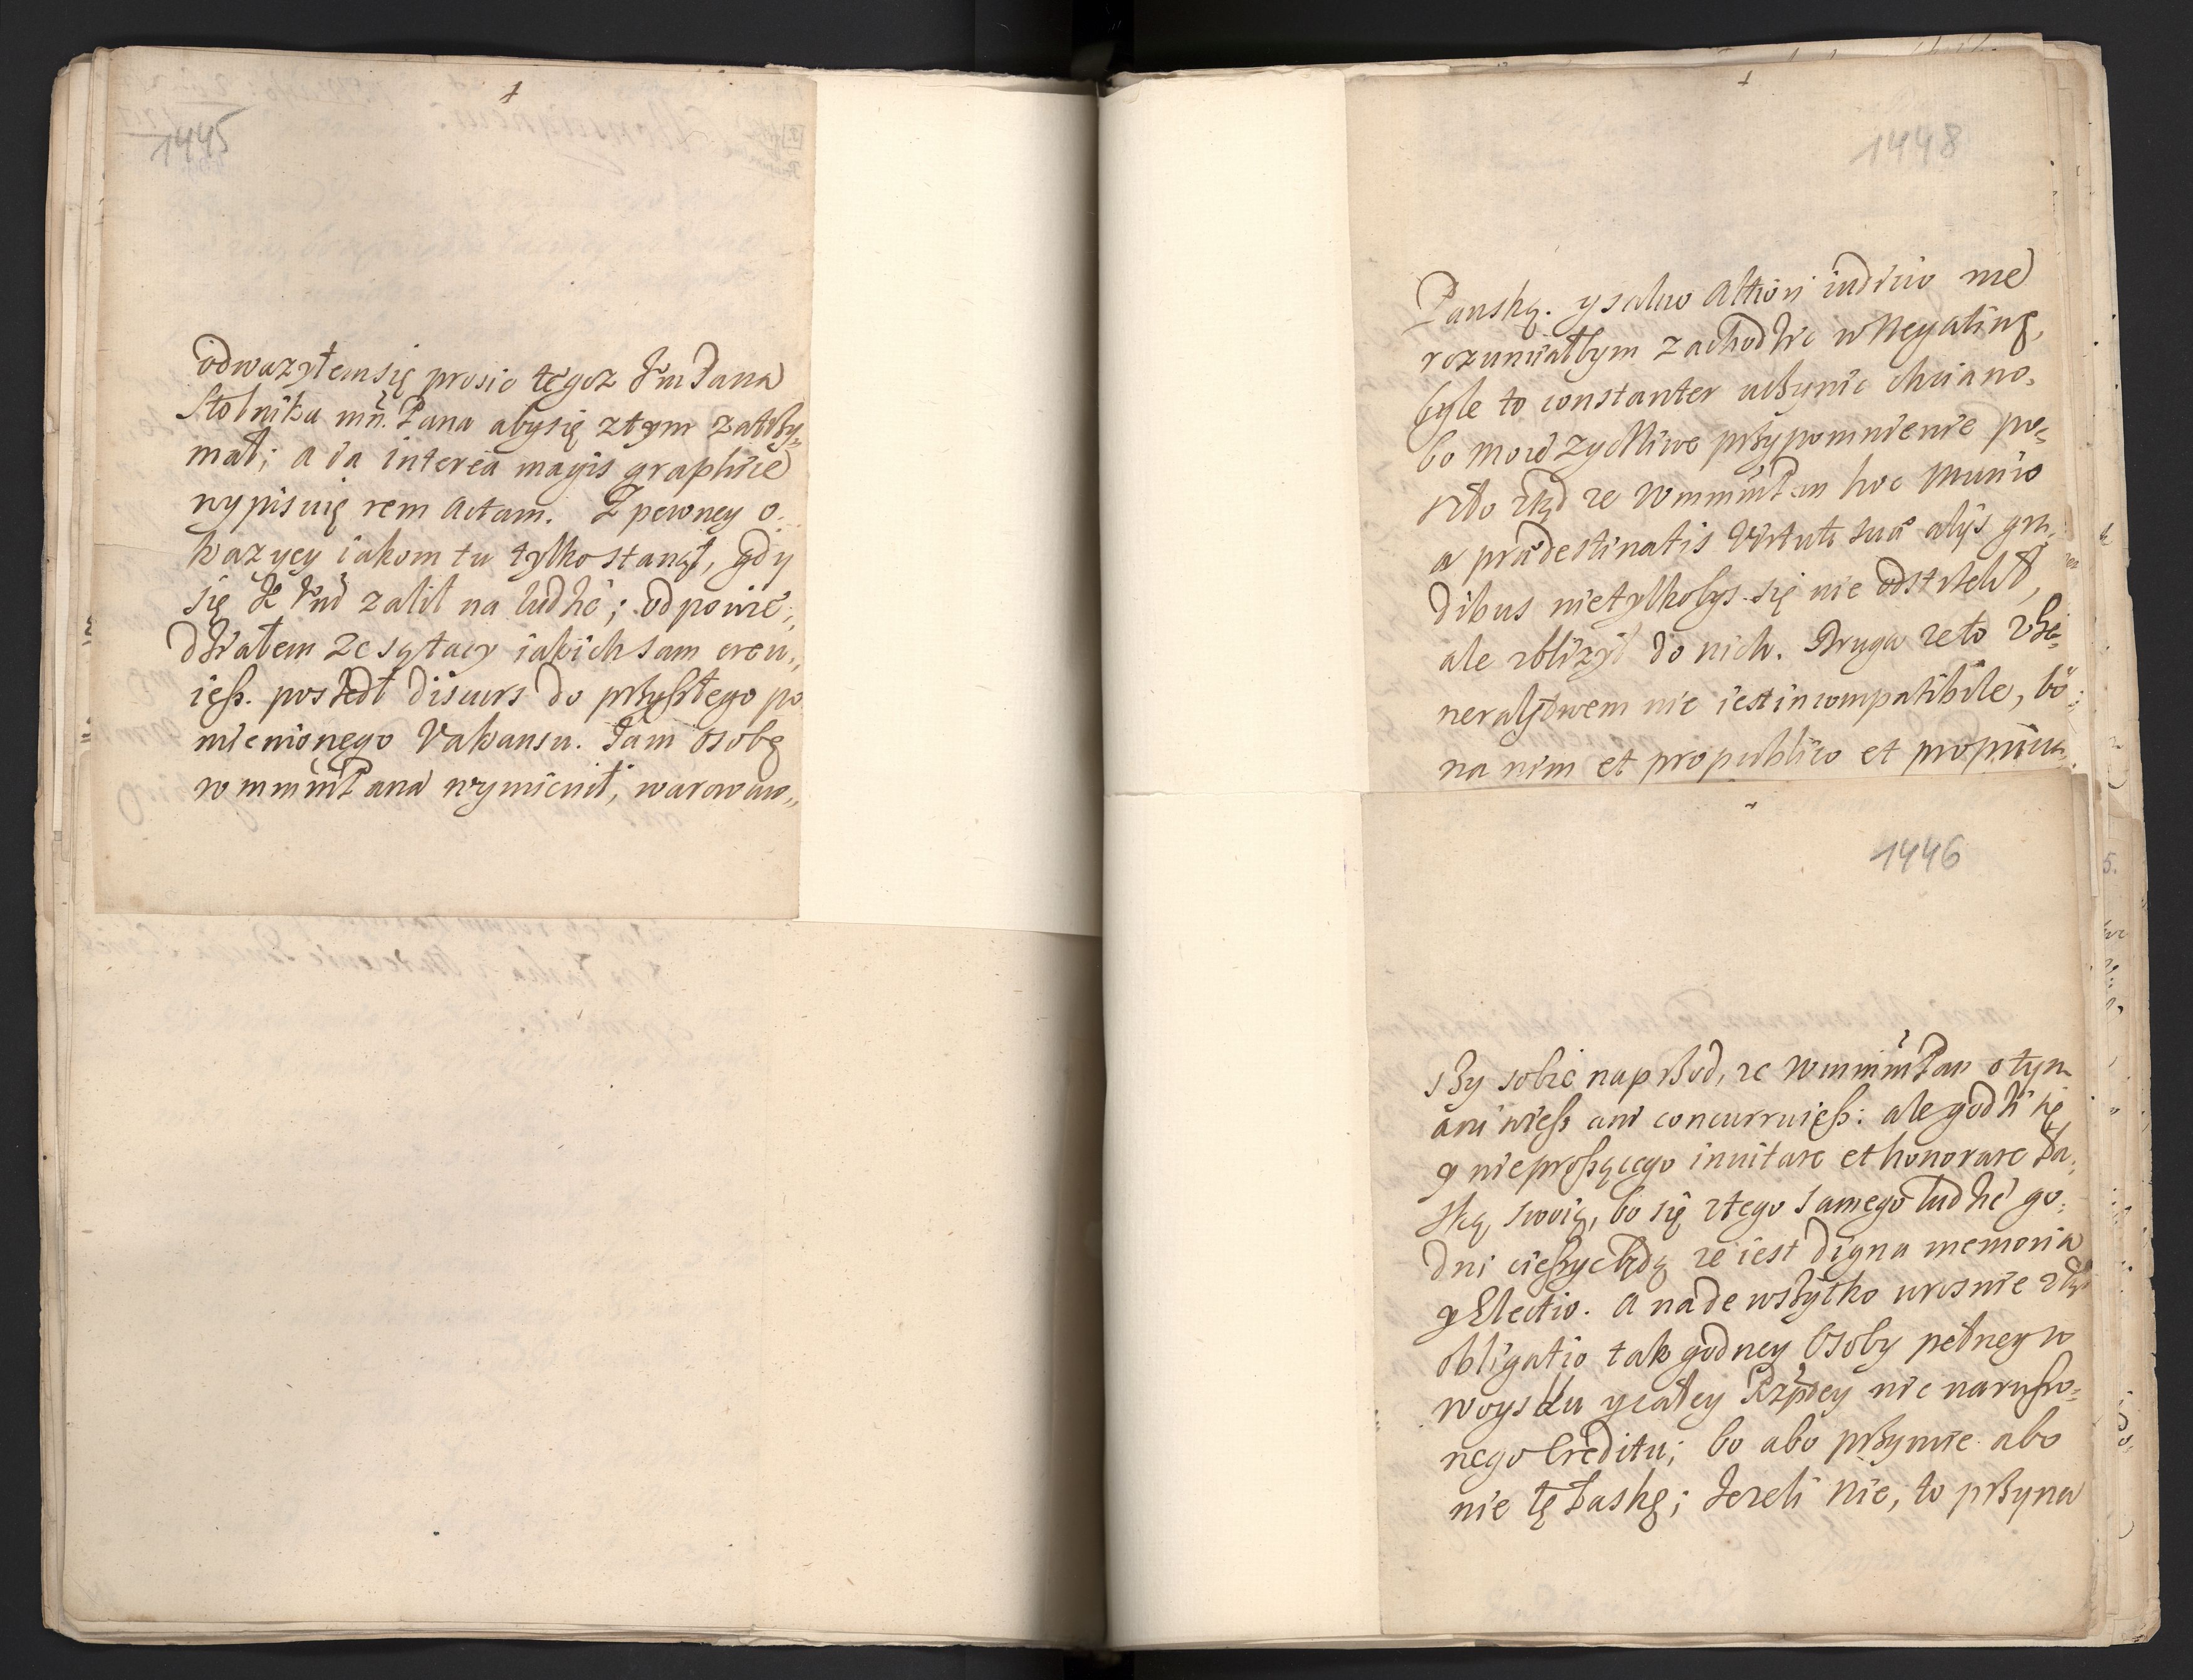 1445
odwazyłem się prosic tegoz JmPana
Stolnika mñ. Pana aby się z tym zatrzy„
mał; a ia interea magis graphice
wypisuię rem actam. Z pewney o„
kazyey iakom tu tylko stanął, gdy
się Jmć zalił na ludzi; odpowie„
działem ze są tacy iakich sam creu„
iesz. poszedł discurs do przyszłego po
mienionego Vakansu. Jam osobę
wmmmPana wymienił, warowaw„
1448
Panską. y salvo altiori iudicio nie
rozumiałbym zachodzic w Negatiwę,
byle to constanter uczynic chciano.
bo moie zyczliwe przypomnienie po„
szło ztąd ze WmmmPan hoc munio
a praedestinatis Virtute sua alijs gra„
dibus nie tylkobys się nie odstrzelił,
ale zblizył do nich. Druga ze to z Je„
neralstwem nie iest incompatibile, bo
na nim et pro publico et pro priua„
1446
szy sobie naprzod, ze WmmmPan o tym
ani wiesz ani concurruiesz: ale godzi się
y nieproszącego inuitare et honorare Ła„
ską swoią, bo się z tego samego ludzie go„
dni cieszyc będą ze iest digna memoria
y Electio. A nade wszytko urosnie ztąd
obligatio tak godney Osoby pełney w
woysku y całey Rzptey nie naruszo„
nego Creditu; bo abo przymie abo
nie tę Łaskę; Jezeli nie, to przyna